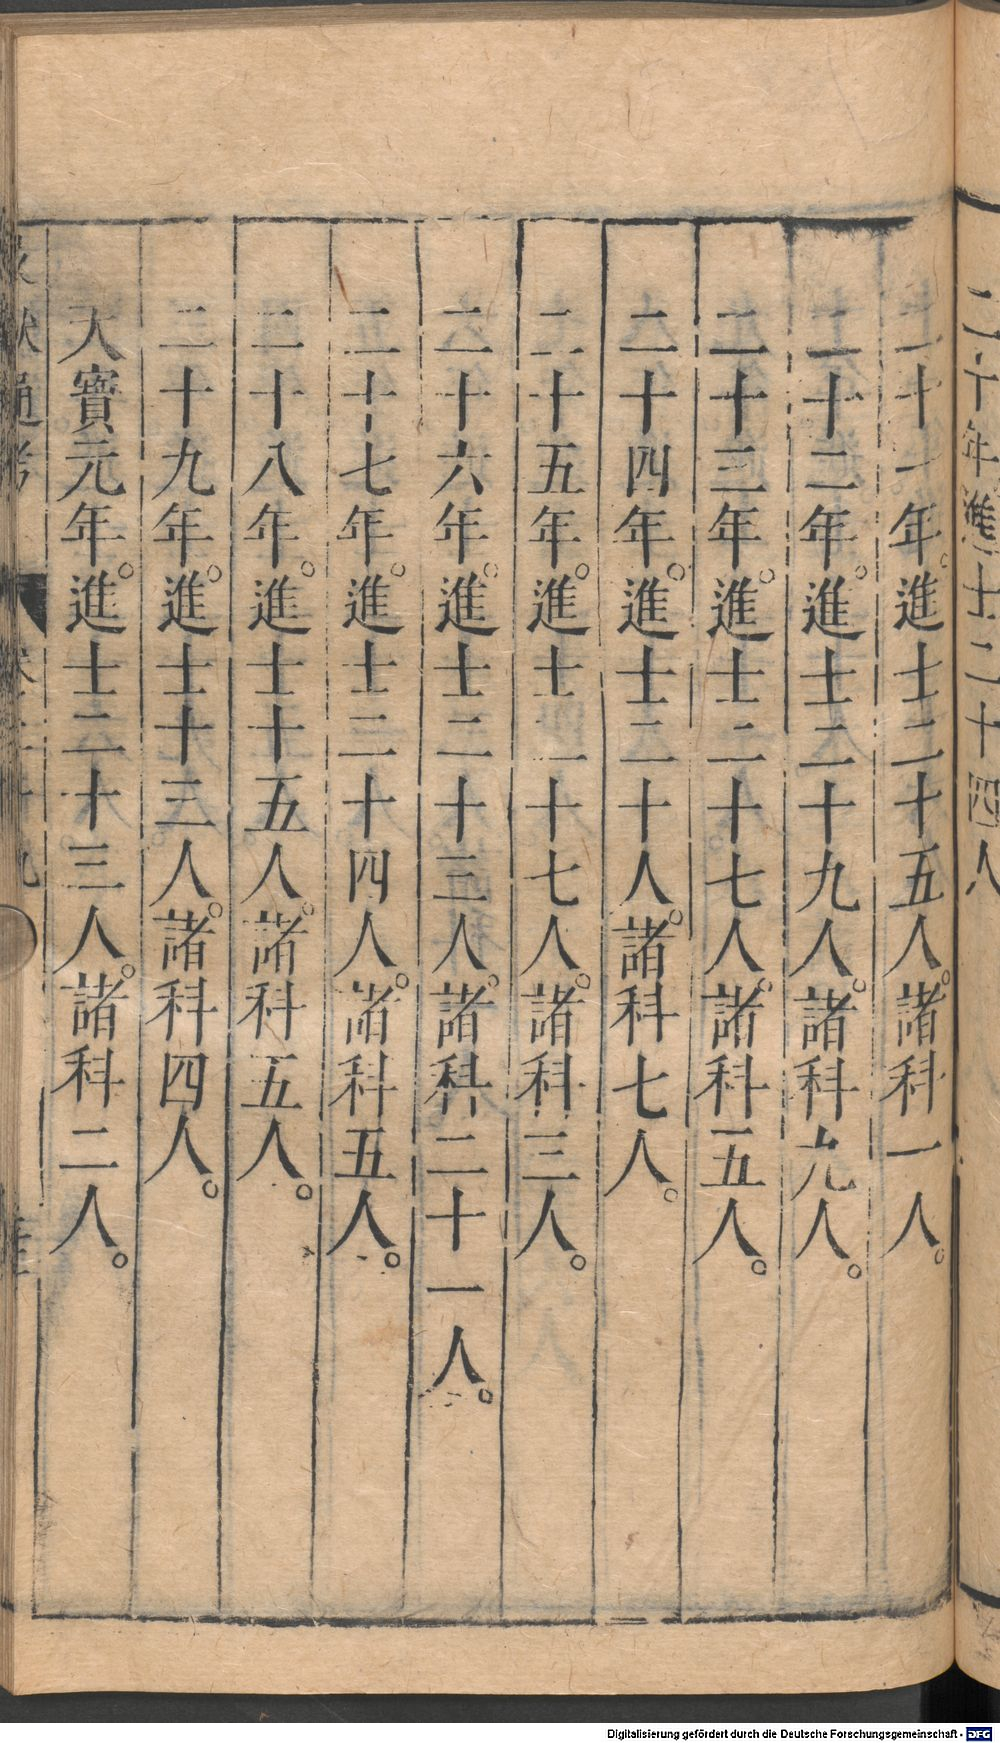 二十年進士二十四人
二十一年。進士二十五人。諸科一人。
二十二年。進士二十九人。諸科九人。
二十三年。進士二十七人。諸科五人。
二十四年。進士二十人。諸科七人。
二十五年。進士二十七人。諸科三人。
二十六年。進士二十三人。諸科二十一人。
二十七年。進士二十四人。諸科五人。
二十八年。進士十五人。諸科五人。
二十九年。進士十三人。諸科四人。
天寶元年。進士二十三人。諸科二人。
獻通考
Digitalisierung gefördert durch die Deutsche Forschungsgemeinschaft - DFG